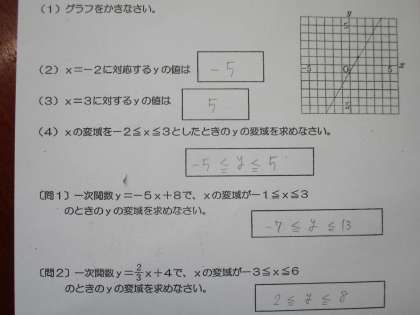 (1) グラフをかきなさい。
y
5
-5 0 5 x
5
(2) x=-2に対応するyの値は -5
(3) x=3に対するyの値は 5
(4) xの変域を-2≦x≦3としたときのyの変域を求めなさい。
-5≦y≦5
〔問1〕一次関数y=-5x+8で、xの変域が-1≦x≦3
のときのyの変域を求めなさい。
-7≦y≦13
〔問2〕一次関数y=2/3x+4で、xの変域が-3≦x≦6
のときのyの変域を求めなさい。
2≦y≦8